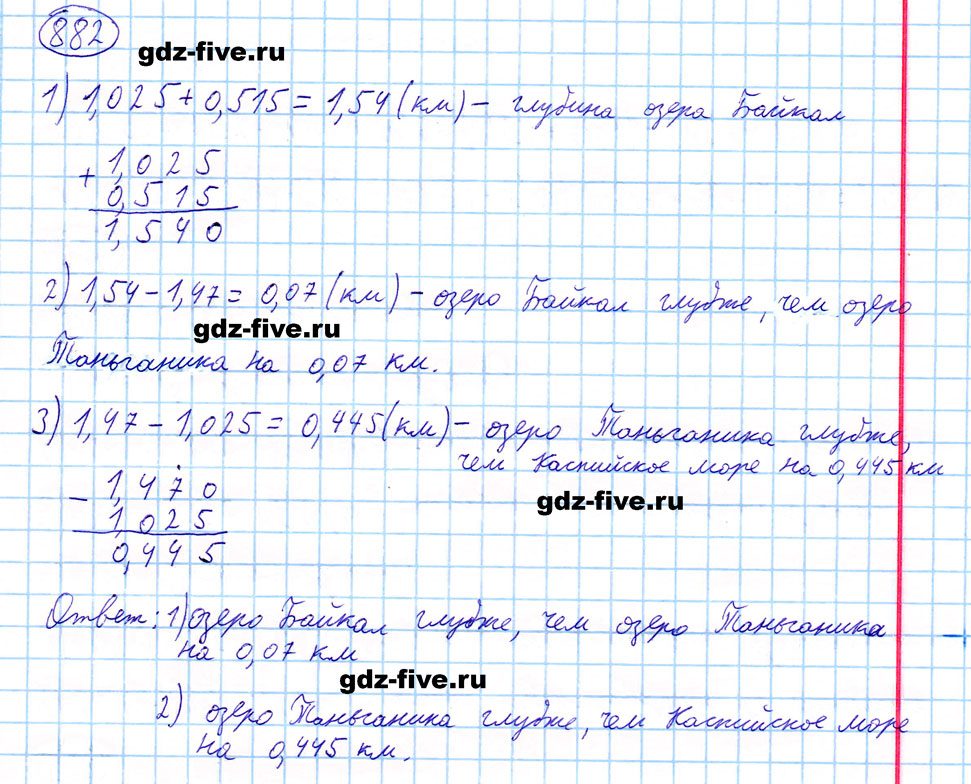 882
gdz-five.ru
1) 1,025 + 0,515 = 1,54 (км) – глубина озера Байкал
+ 1,025
0,515
1,540
2) 1,54 – 1,47 = 0,07 (км) – озеро Байкал глубже, чем озеро
gdz-five.ru
Таньганика на 0,07 км.
3) 1,47 – 1,025 = 0,445 (км) – озеро Таньганика глубже,
чем Каспийское море на 0,445 км
– 1,470
1,025
0,445
gdz-five.ru
Ответ: 1) озеро Байкал глубже, чем озеро Таньганика
на 0,07 км
gdz-five.ru
2) озеро Таньганика глубже, чем Каспийское море
на 0,445 км.